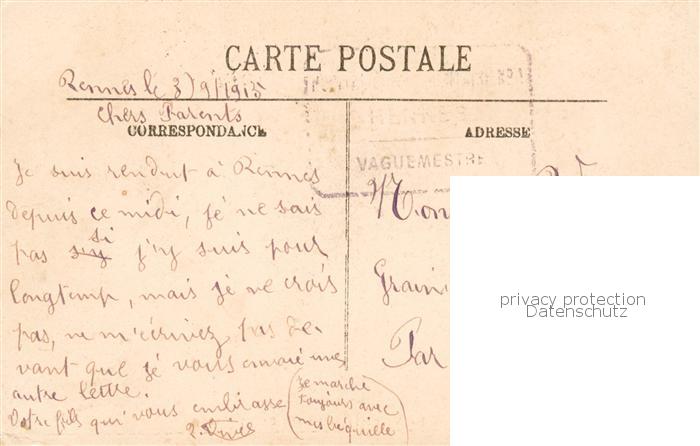 CARTE POSTALE
Rennes le 3/9/1915
Chers Parents
CORRESPONDANCE
ADRESSE
RENNES
VAGUEMESTRE
Je suis rendut à Rennes
depuis ce midi, je ne sais
pas si j'y suis pour
longtemp, mais je ne crois
pas, ne m'écrivez pas de
vant que je vous envoie une
autre lettre.
Votre fils qui vous embrasse
Je marche
toujours avec
mes béquille
Mon
Grain
Par
privacy protection
Datenschutz